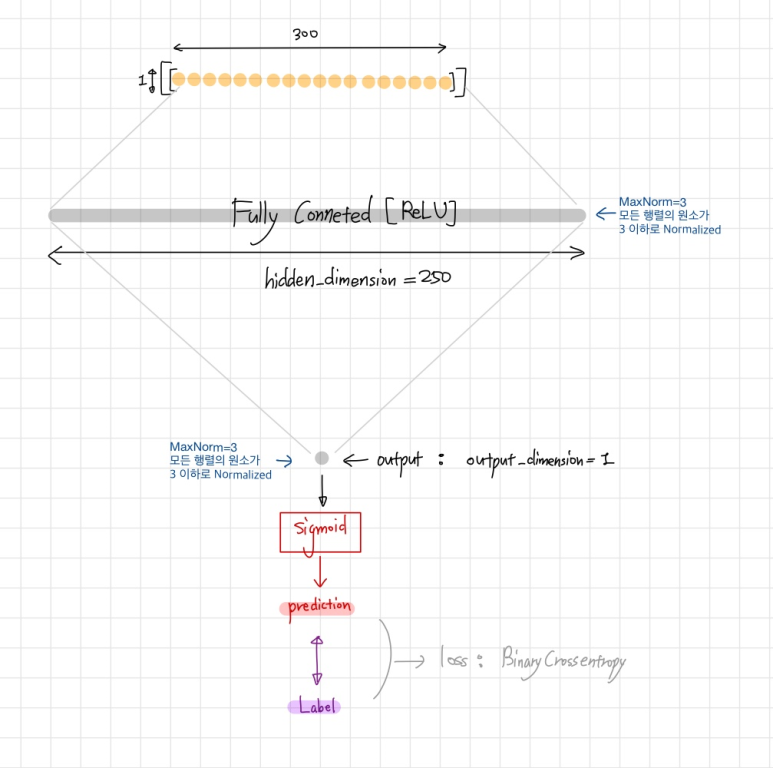 300
1
Fully Conneted [ReLU]
MaxNorm=3
모든 행렬의 원소가
3 이하로 Normalized
hidden_dimension = 250
MaxNorm=3
모든 행렬의 원소가
3 이하로 Normalized
output : output_dimension = 1
Sigmoid
prediction
loss : BinaryCrossentropy
Label